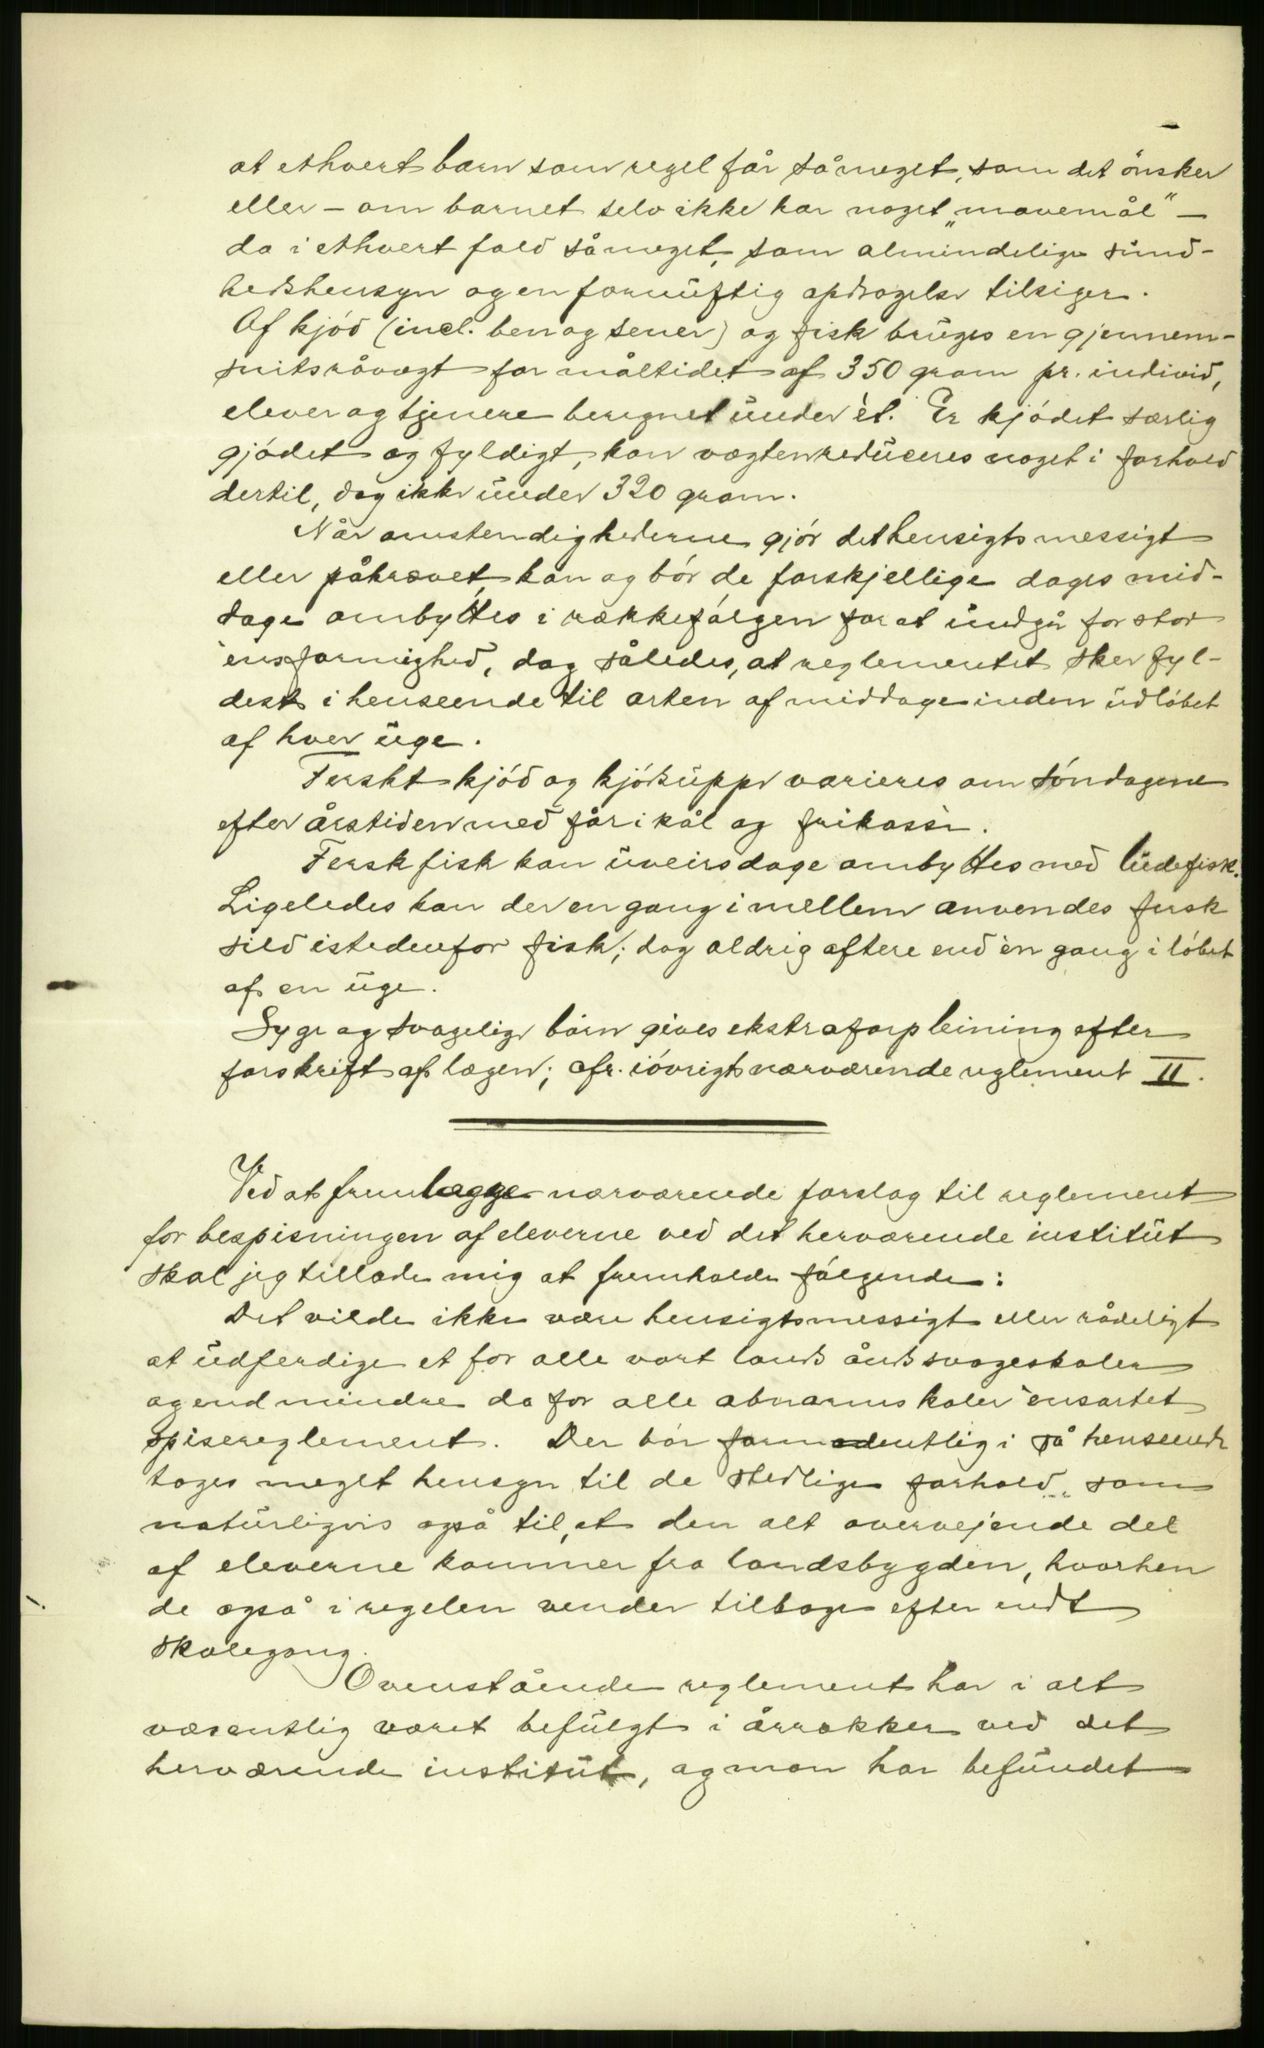 at ethvert barn som regel får såmeget, som det önsker
eller – om barnet selv ikke har noget „mavemål" –
da i ethvert fald såmeget, som almindelige sund-
hedshensyn og en fornuftig opdragelse tilsiger.
Af kjöd (incl. ben og sener) og fisk bruges en gjennem-
snitsråvegt for måltidet af 350 gram pr. individ,
elever og tjenere beregnet under èt. Er kjödet særlig
gjödet og fyldigt, kan vægten reduceres noget i forhold
dertil, dog ikke under 320 gram.
Når omstendighederne gjör det hensigtsmessigt
eller påkrævet, kan og bör de forskjellige dages mid-
dage ombyttes i rækkefölgen for at undgå for stor
ensformighed, dog således, at reglementet sker fyl-
dest i henseende til arten af middage inden udlöbet
af hver uge.
Ferskt kjöd og kjödsuppe varieres om söndagene
efter årstiden med får i kål og frikassè.
Fersk fisk kan uveirsdage ombyttes med ludefisk.
Ligeledes kan der en gang imellem anvendes fersk
sild istedenfor fisk; dog aldrig oftere end èn gang i löbet
af en uge.
Syge og svagelige börn gives ekstraforpleining efter
forskrift af lægen; cfr. iövrigt nærværende reglement II.
Ved at fremlægge nærværende forslag til reglement
for bespisningen af eleverne ved det herværende institut
skal jeg tillade mig at fremholde fölgende:
Det vilde ikke være hensigtsmessigt eller rådeligt
at udferdige et for alle vort lands åndssvageskoler
og end mindre da for alle abnormskoler ensartet
spisereglement. Der bör formodentlig i så henseende
tages meget hensyn til de stedlige forhold, som
naturligvis også til, at den alt overvejende del
af eleverne kommer fra landsbygden, hvorhen
de også i regelen vender tilbage efter endt
skolegang.
Ovenstående reglement har i alt
væsentlig været befulgt i årrækker ved det
herværende institut, og man har befundet